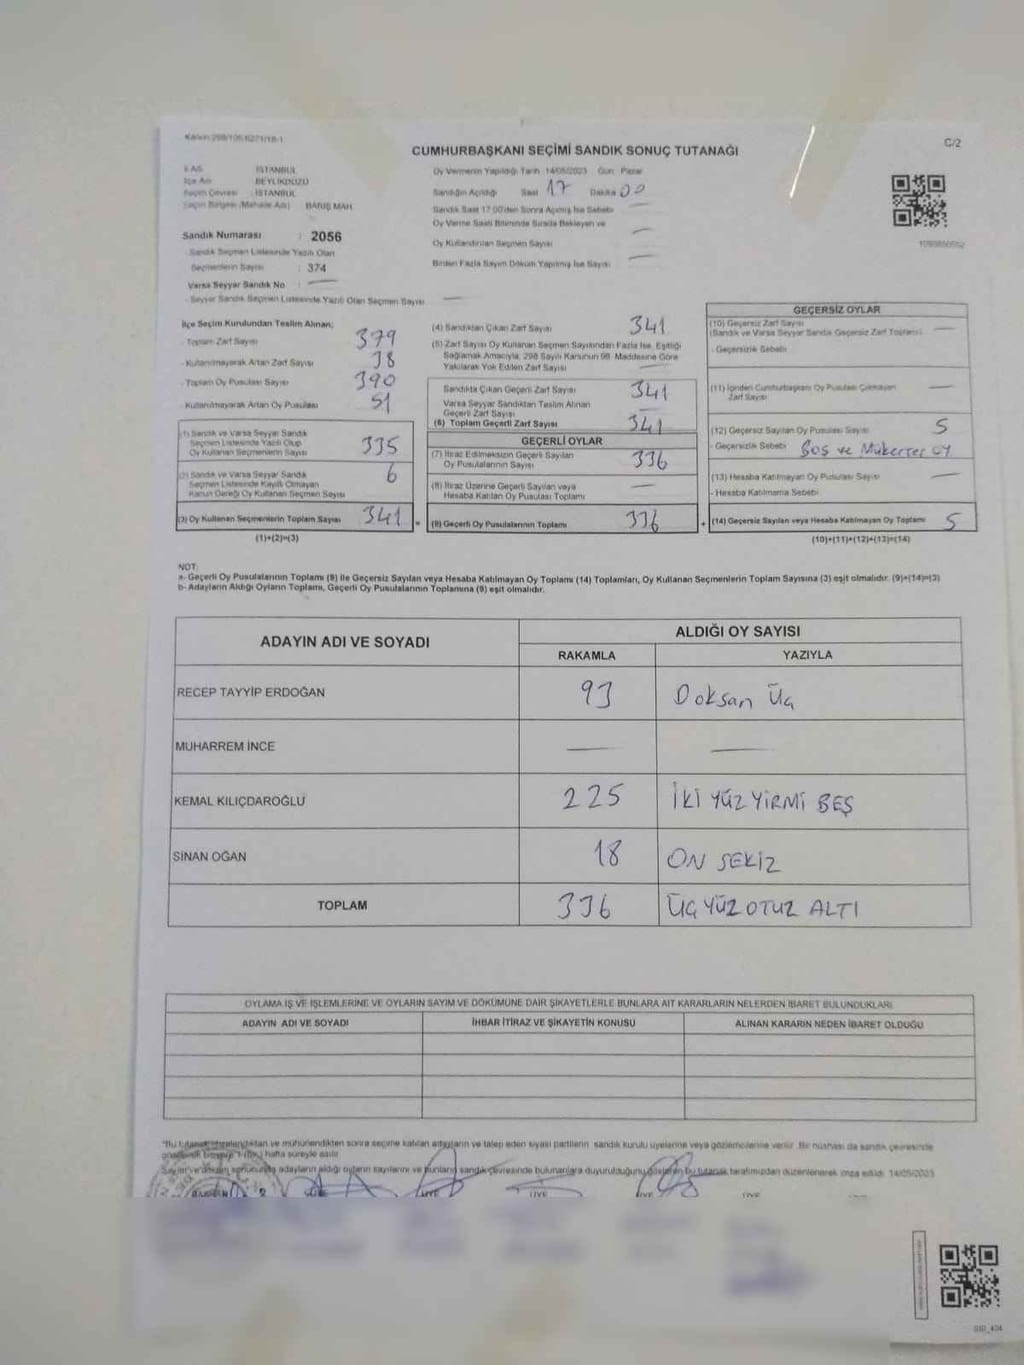 CUMHURBAŞKANI SEÇİMİ SANDIK SONUÇ TUTANAĞI
C/2
İli Adı : İSTANBUL
İlçe Adı : BEYLİKDÜZÜ
Seçim Çevresi : İSTANBUL
Seçim Bölgesi (Mahalle Adı) : BARIŞ MAH.
Sandık Numarası : 2056
Sandık Seçmen Listesinde Yazılı Olan
Seçmenlerin Sayısı : 374
Varsa Seyyar Sandık No :
- Seyyar Sandık Seçmen Listesinde Yazılı Olan Seçmen Sayısı
Oy Vermenin Yapıldığı Tarih 14/05/2023 Gün Pazar
Sandığın Açıldığı Saat 17 Dakika 00
Sandık Saat 17:00'den Sonra Açılmış İse Sebebi
Oy Verme Saati Bitiminde Sırada Bekleyen ve
Oy Kullandırılan Seçmen Sayısı
Birden Fazla Sayım Döküm Yapılmış İse Sayısı
İlçe Seçim Kurulundan Teslim Alınan;
- Toplam Zarf Sayısı 379
- Kullanılmayarak Artan Zarf Sayısı 38
- Toplam Oy Pusulası Sayısı 390
- Kullanılmayarak Artan Oy Pusulası 51
(1) Sandık ve Varsa Seyyar Sandık
Seçmen Listesinde Yazılı Olup
Oy Kullanan Seçmenlerin Sayısı 335
(2) Sandık ve Varsa Seyyar Sandık
Seçmen Listesinde Kayıtlı Olmayan
Kanun Gereği Oy Kullanan Seçmen Sayısı 6
(3) Oy Kullanan Seçmenlerin Toplam Sayısı 341 =
(1)+(2)=(3)
(4) Sandıktan Çıkan Zarf Sayısı 341
(5) Zarf Sayısı Oy Kullanan Seçmen Sayısından Fazla İse, Eşitliği
Sağlamak Amacıyla, 298 Sayılı Kanunun 98. Maddesine Göre
Yakılarak Yok Edilen Zarf Sayısı
Sandıkta Çıkan Geçerli Zarf Sayısı 341
Varsa Seyyar Sandıktan Teslim Alınan
Geçerli Zarf Sayısı
(6) Toplam Geçerli Zarf Sayısı 341
GEÇERLİ OYLAR
(7) İtiraz Edilmeksizin Geçerli Sayılan
Oy Pusulalarının Sayısı 336
(8) İtiraz Üzerine Geçerli Sayılan veya
Hesaba Katılan Oy Pusulası Toplamı
(9) Geçerli Oy Pusulalarının Toplamı 336 +
GEÇERSİZ OYLAR
(10) Geçersiz Zarf Sayısı
(Sandık ve Varsa Seyyar Sandık Geçersiz Zarf Toplamı)
- Geçersizlik Sebebi
(11) İçinden Cumhurbaşkanı Oy Pusulası Çıkmayan
Zarf Sayısı
(12) Geçersiz Sayılan Oy Pusulası Sayısı 5
- Geçersizlik Sebebi Boş ve Mükerrer oy
(13) Hesaba Katılmayan Oy Pusulası Sayısı
- Hesaba Katılmama Sebebi
(14) Geçersiz Sayılan veya Hesaba Katılmayan Oy Toplamı 5
(10)+(11)+(12)+(13)=(14)
NOT:
a- Geçerli Oy Pusulalarının Toplamı (9) ile Geçersiz Sayılan veya Hesaba Katılmayan Oy Toplamı (14) Toplamları, Oy Kullanan Seçmenlerin Toplam Sayısına (3) eşit olmalıdır. (9)+(14)=(3)
b- Adayların Aldığı Oyların Toplamı, Geçerli Oy Pusulalarının Toplamına (9) eşit olmalıdır.
ADAYIN ADI VE SOYADI
ALDIĞI OY SAYISI
RAKAMLA YAZIYLA
RECEP TAYYİP ERDOĞAN 93 Doksan Üç
MUHARREM İNCE
KEMAL KILIÇDAROĞLU 225 İKİ YÜZ YİRMİ BEŞ
SİNAN OĞAN 18 ON SEKİZ
TOPLAM 336 ÜÇ YÜZ OTUZ ALTI
OYLAMA İŞ VE İŞLEMLERİNE VE OYLARIN SAYIM VE DÖKÜMÜNE DAİR ŞİKAYETLERLE BUNLARA AİT KARARLARIN NELERDEN İBARET BULUNDUKLARI
ADAYIN ADI VE SOYADI İHBAR İTİRAZ VE ŞİKAYETİN KONUSU ALINAN KARARIN NEDEN İBARET OLDUĞU
*Bu tutanak imzalandıktan ve mühürlendikten sonra seçime katılan adayların ve talep eden siyasi partilerin sandık kurulu üyelerine veya gözlemcilerine verilir. Bir nüshası da sandık çevresinde
hafta süreyle asılır.
Sayım ve döküm sonunda adayların aldığı oyların sayılarını ve bunların sandık çevresinde bulunanlara duyurulduğunu gösteren bu tutanak tarafımızdan düzenlenerek imza edildi. 14/05/2023
BAŞKAN ÜYE ÜYE ÜYE ÜYE